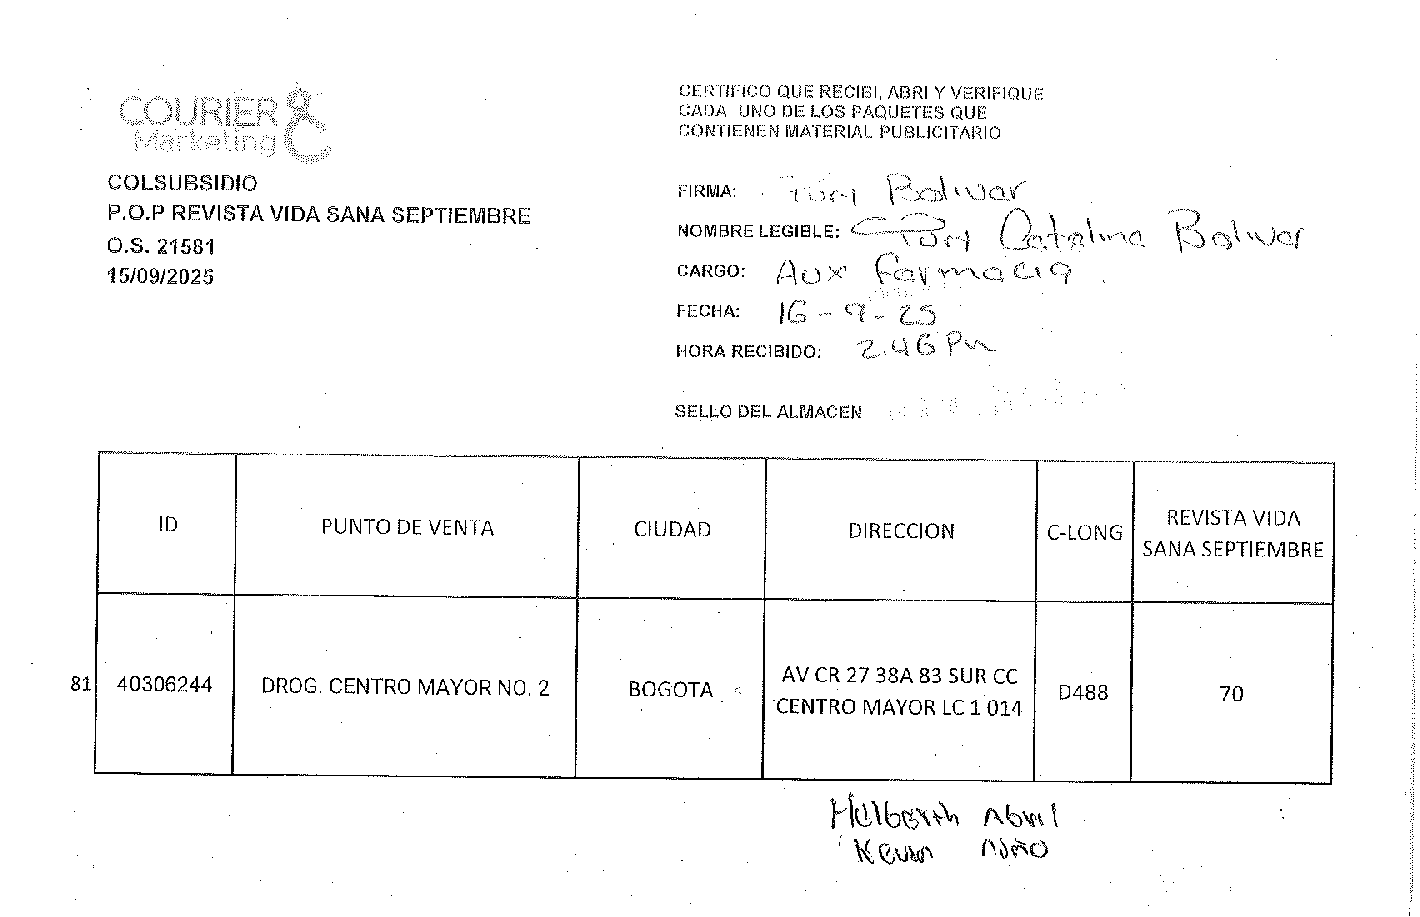 COURIER
Marketing
COLSUBSIDIO
P.O.P REVISTA VIDA SANA SEPTIEMBRE
O.S. 21581
15/09/2025
CERTIFICO QUE RECIBI, ABRI Y VERIFIQUE
CADA UNO DE LOS PAQUETES QUE
CONTIENEN MATERIAL PUBLICITARIO
FIRMA: Bolivar
NOMBRE LEGIBLE: Catalina Bolivar
CARGO: Aux Farmacia
FECHA: 16-9-25
HORA RECIBIDO: 2:46 Pm
SELLO DEL ALMACEN
ID PUNTO DE VENTA CIUDAD DIRECCION C-LONG REVISTA VIDA
SANA SEPTIEMBRE
81 40306244 DROG. CENTRO MAYOR NO. 2 BOGOTA AV CR 27 38A 83 SUR CC
CENTRO MAYOR LC 1 014 D488 70
Abril
Kevin Niño